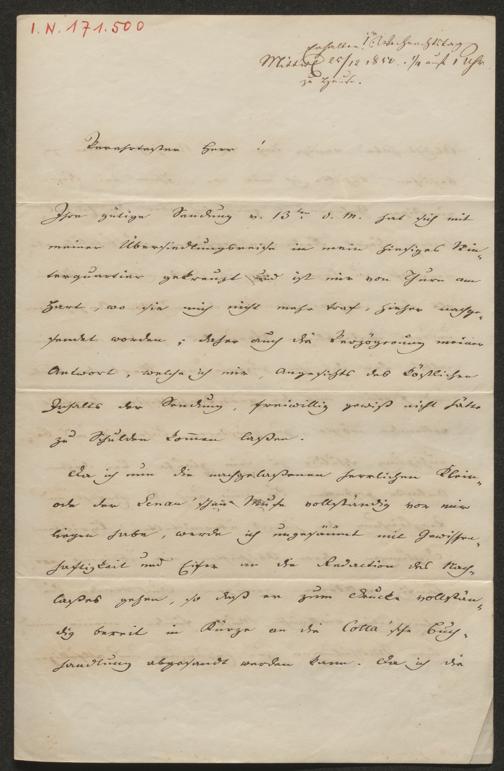 I. N. 171.500
erhalten Weihnachtstag
Mittw. 25/12 1850. 1/4 auf 1 Uhr
zu Hause.
Verehrtester Herr !
Ihre gütige Sendung v. 13ten d. M. hat sich mit
meiner Übersiedlungsreise in mein hiesiges Win-
terquartier gekreuzt und ist mir von Thurn am
Hart, wo sie mich nicht mehr traf, hieher nachge-
sendet worden; daher auch die Verzögerung meiner
Antwort, welche ich mir, Angesichts des köstlichen
Inhalts der Sendung, freiwillig gewiß nicht hätte
zu Schulden kommen laßen.
Da ich nun die nachgelaßenen herrlichen Klein-
ode der Lenau'schen Muse vollständig vor mir
liegen habe, werde ich ungesäumt mit Gewissen-
haftigkeit und Eifer an die Redaction des Nach-
laßes gehen, so daß er zum Drucke vollstän-
dig bereit in Kürze an die Cotta'sche Buch-
handlung abgesandt werden kann. Da ich die